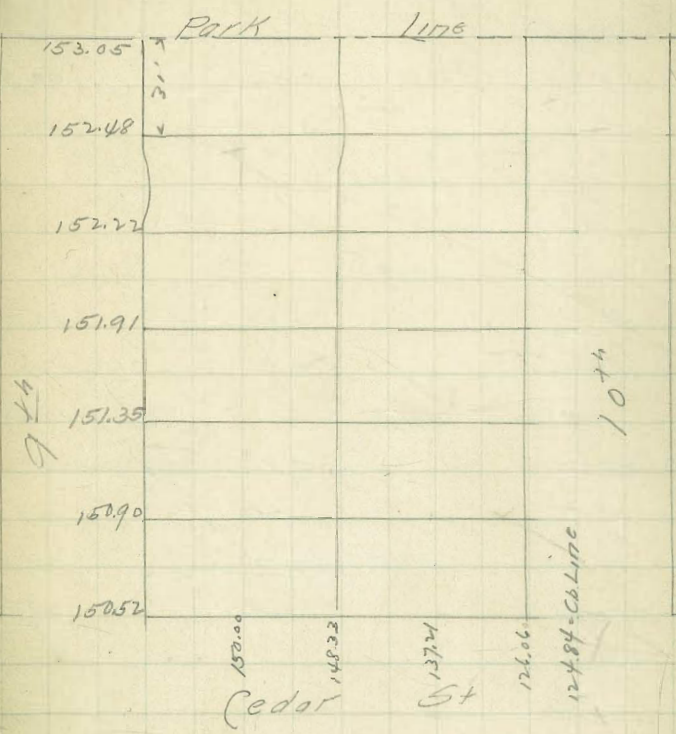 Park Line
153.05
31'
152.48
152.22
151.91
9th
10th
151.35
150.90
150.52
150.00
148.33
137.21
126.06
124.84 = Cb Line
Cedar St